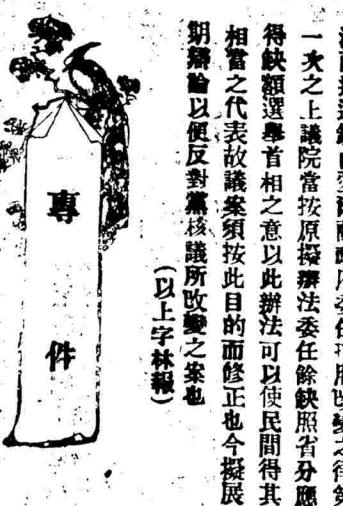 一次之上議院當按原擬辦法委任餘缺照省分應
得缺額選舉首相之意以此辦法可以使民間得其
相當之代表故議案須按此目的而修正也今擬展
期辯論以便反對黨核議所改變之案也
(以上字林報)
專件